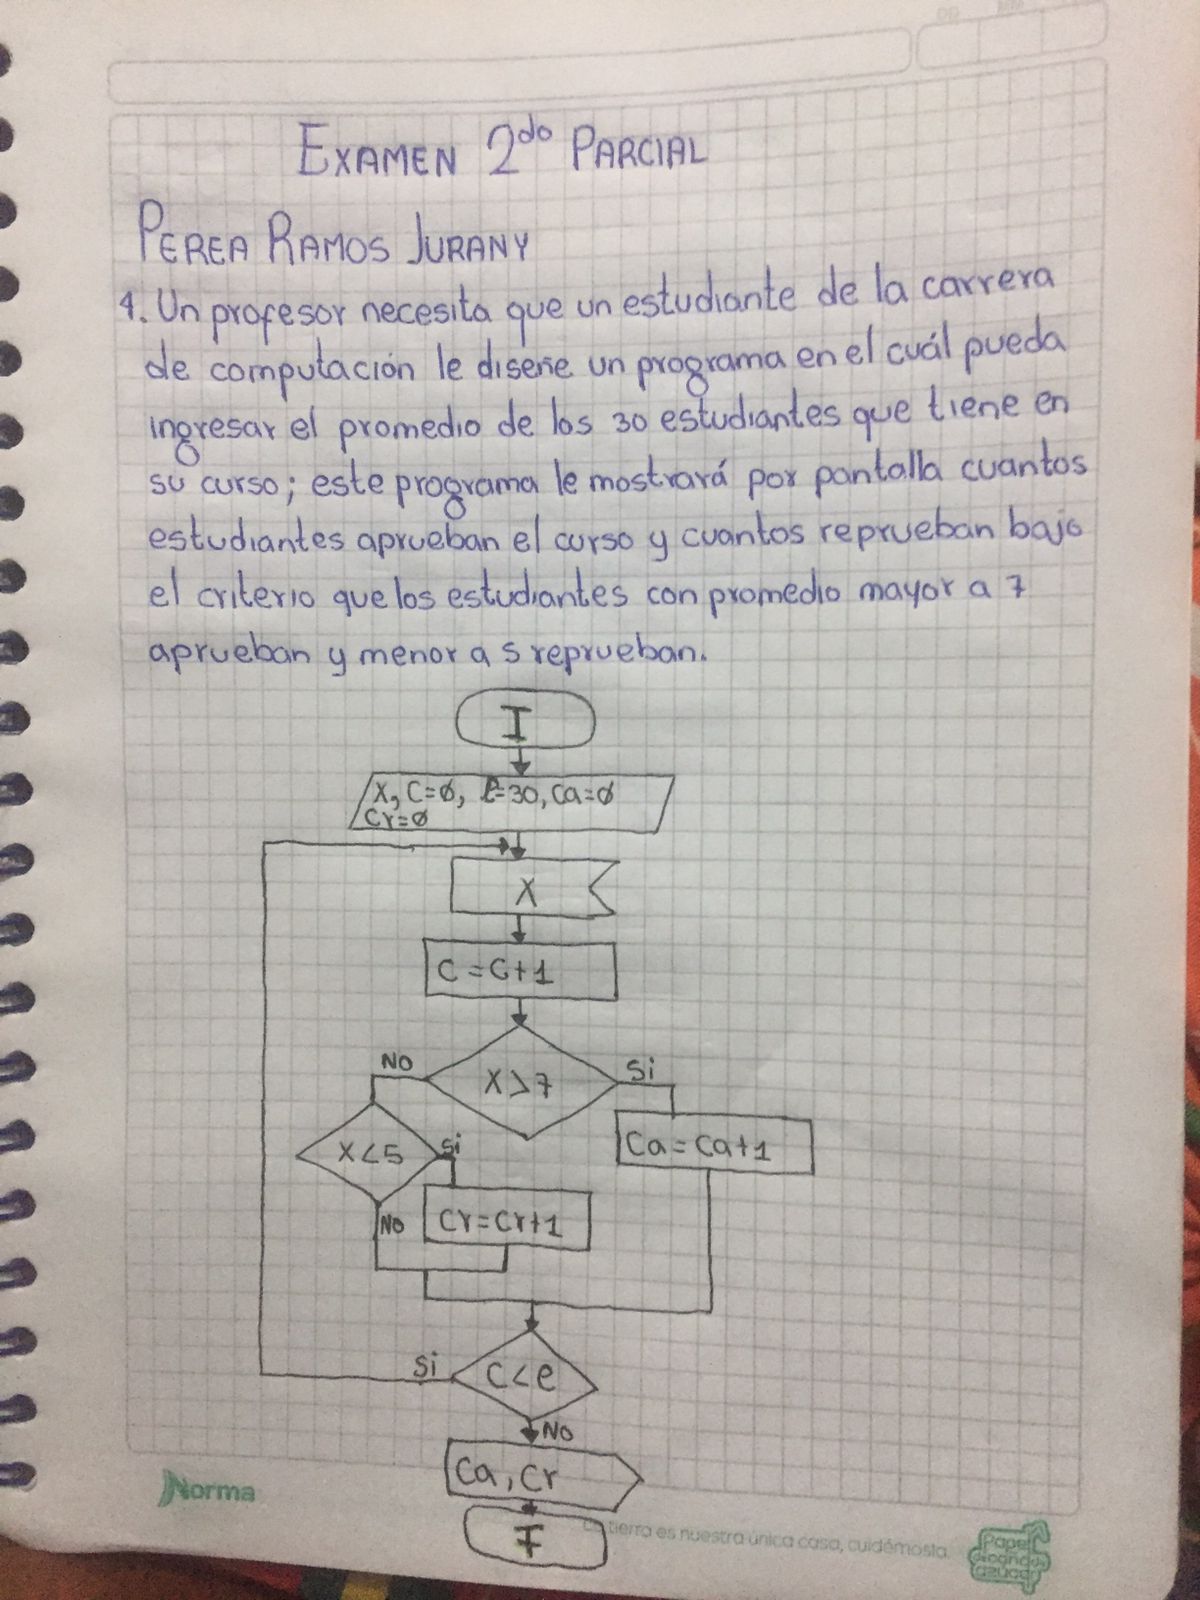 EXAMEN 2do PARCIAL
PEREA RAMOS JURANY
1. Un profesor necesita que un estudiante de la carrera
de computación le diseñe un programa en el cuál pueda
ingresar el promedio de los 30 estudiantes que tiene en
su curso; este programa le mostrará por pantalla cuantos
estudiantes aprueban el curso y cuantos reprueban bajo
el criterio que los estudiantes con promedio mayor a 7
aprueban y menor a 5 reprueban.
I
X, C=0, e=30, Ca=0
Cr=0
X
C=C+1
NO
X>7
Si
X<5
Si
Ca=Ca+1
NO
Cr=Cr+1
Si
C<e
NO
Ca, Cr
F
Norma
tierra es nuestra única casa, cuidémosla.
Papel
de caña de
azúcar